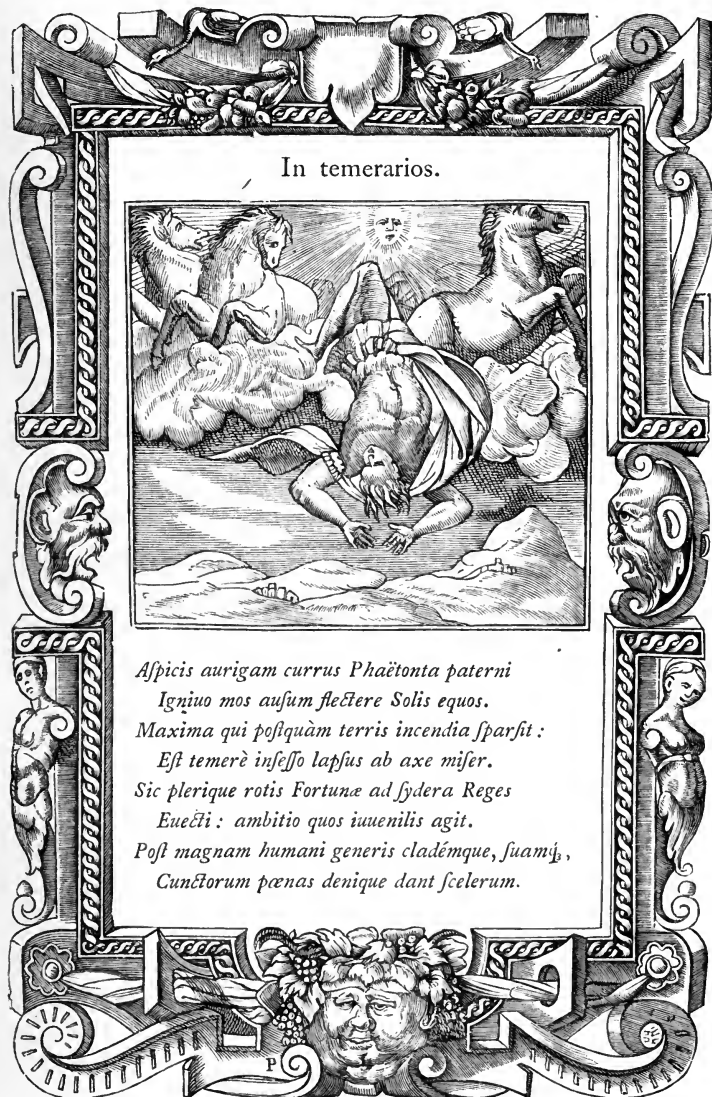 In temerarios.
Aſpicis aurigam currus Phaëtonta paterni
Igniuo mos auſum flectere Solis equos.
Maxima qui poſtquàm terris incendia ſparſit :
Eſt temerè inſeſſo lapſus ab axe miſer.
Sic plerique rotis Fortunæ ad ſydera Reges
Euecti : ambitio quos iuuenilis agit.
Poſt magnam humani generis cladémque, ſuamq́ꝫ,
Cunctorum pœnas denique dant ſcelerum.
P